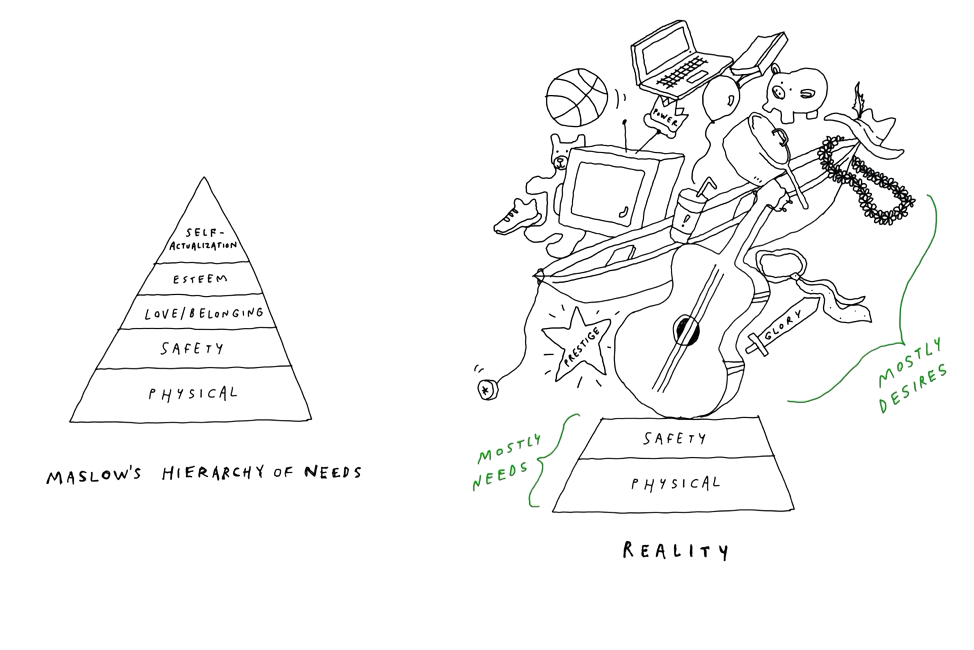 SELF-
ACTUALIZATION
ESTEEM
LOVE/BELONGING
SAFETY
PHYSICAL
MASLOW'S HIERARCHY OF NEEDS
POWER
!
PRESTIGE
GLORY
MOSTLY
DESIRES
MOSTLY
NEEDS
SAFETY
PHYSICAL
REALITY